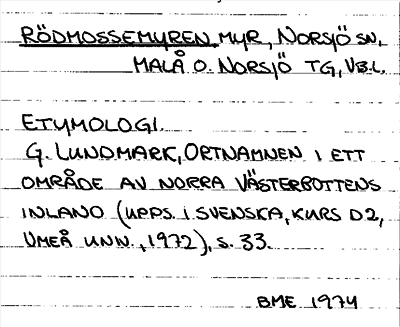 RÖDMOSSEMYREN, MYR, NORSJÖ SN,
MALÅ O. NORSJÖ TG, VB.L.
ETYMOLOGI.
G. LUNDMARK, ORTNAMNEN I ETT
OMRÅDE AV NORRA VÄSTERBOTTENS
INLAND (UPPS. I SVENSKA, KURS D2,
UMEÅ UNIV., 1972), S. 33.
BME 1974